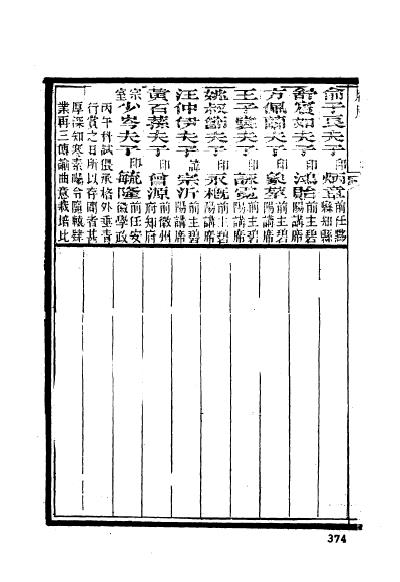 俞子良夫子印炳章前任黟縣知縣
舒實如夫子印鴻貽前主碧陽講席
方佩蘭夫子印象萃前主碧陽講席
王子雲夫子印詠霓前主碧陽講席
姚叔節夫子印永概前主碧陽講席
汪仲伊夫子諱宗沂前主碧陽講席
黃百蓀夫子印曾源前徽州府知府
宗室少岑夫子印毓隆前任安徽學政
丙午科試倶承格外垂青
行賞之日所以存問者甚
厚深知寒素暍令隨轅肄
業再三傳諭曲意栽培比
374